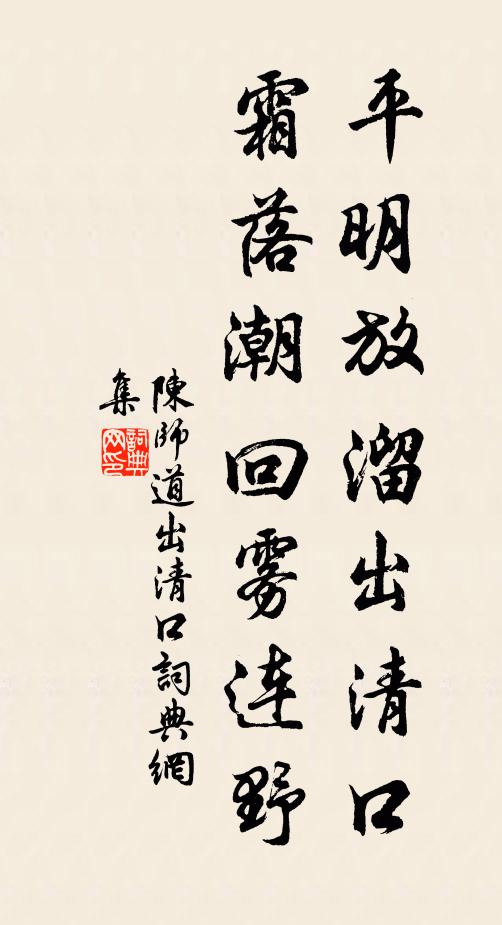 平明放溜出清口
霜落潮回雾连野
陳師道出清口詞典網
集
詞典网印